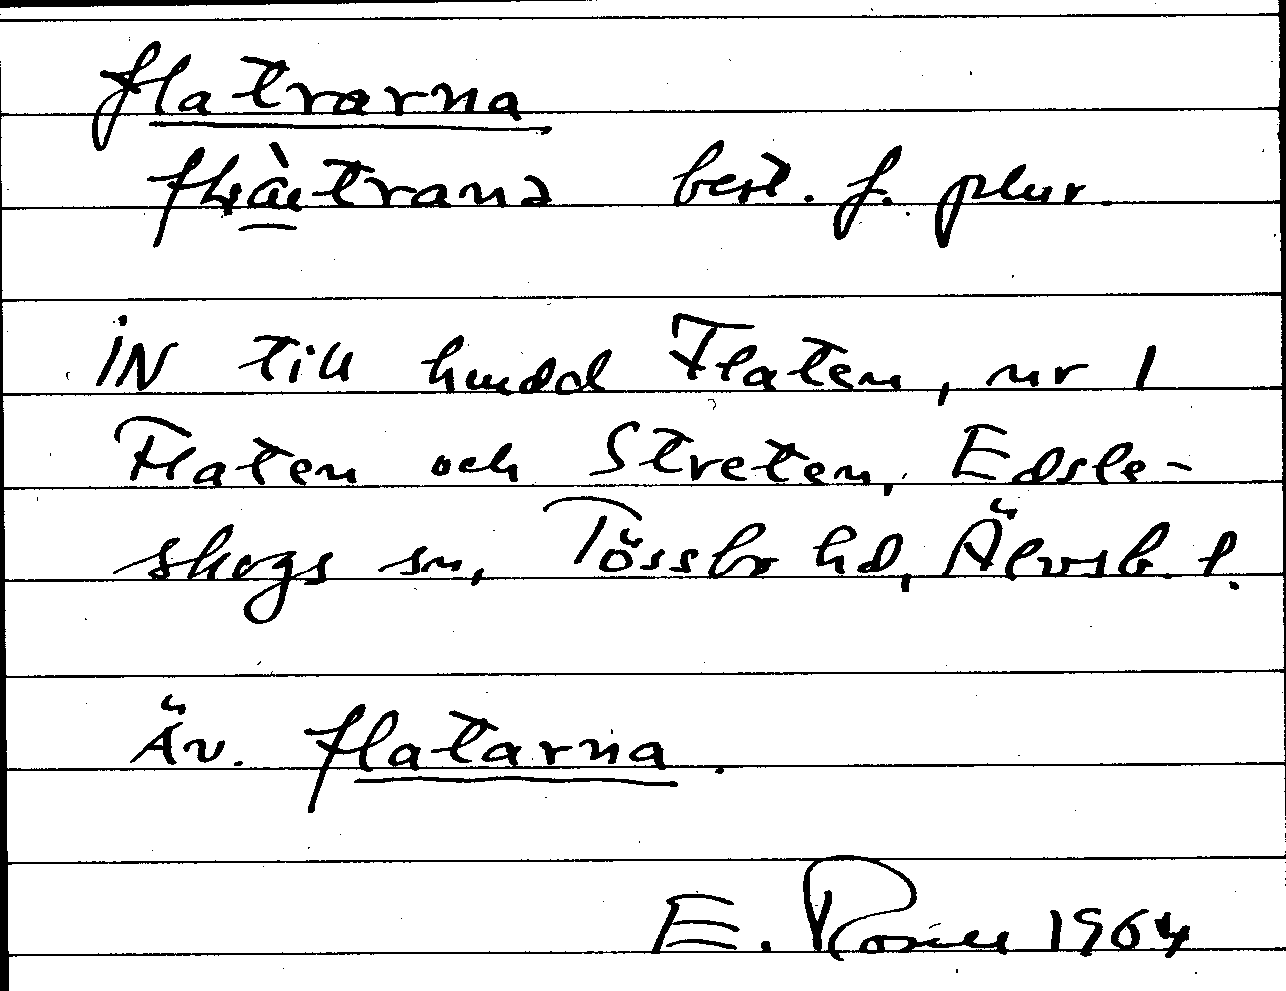 flatrarna
best. f. plur.
iN till hmdal Flaten, nr 1
Flaten och Streten, Edsle-
skogs sn, Tössbo hd, Älvsb. l.
Äv. flatarna.
E. Rosell 1964